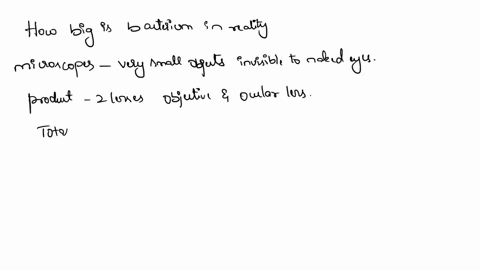 How big is bacterium in reality
microscopes – very small objects invisible to naked eyes.
product – 2 lenses objective & ocular lens.
Tota